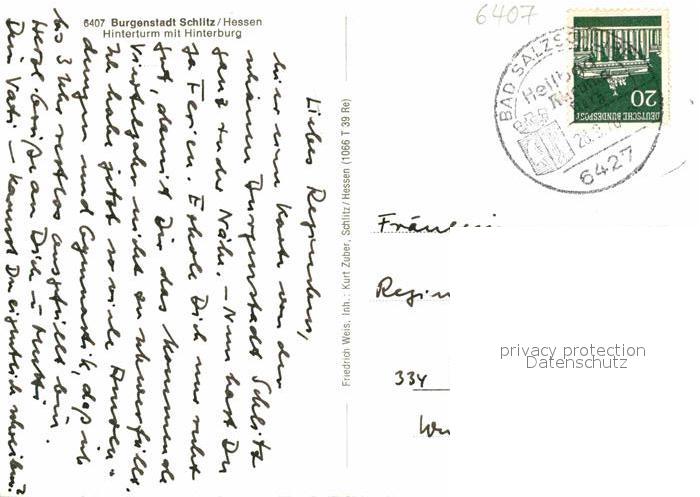 6407 Burgenstadt Schlitz/Hessen
Hinterturm mit Hinterburg
6407
Liebes Reginchen,
hier eine Karte von der
schönen Burgenstadt Schlitz
ganz in der Nähe. – Nun hast Du
ja Ferien. Erhole Dich nur recht
gut, damit Dir das kommende
Vierteljahr nicht zu schwer fällt.
Ich habe jetzt so viele Anwen-
dungen und Gymnastik, daß ich
bis 3 Uhr restlos ausgefüllt bin.
Herzl. Grüße an Dich u. Mutti
Dein Vati – kannst Du eigentlich schreiben?
Friedrich Weis, Inh.: Kurt Zuber, Schlitz/Hessen (1066 T 39 Re)
BAD SALZSCH
Heilb
6427
20
DEUTSCHE BUNDESPOST
Fräulein
Regin
334
privacy protection
Datenschutz